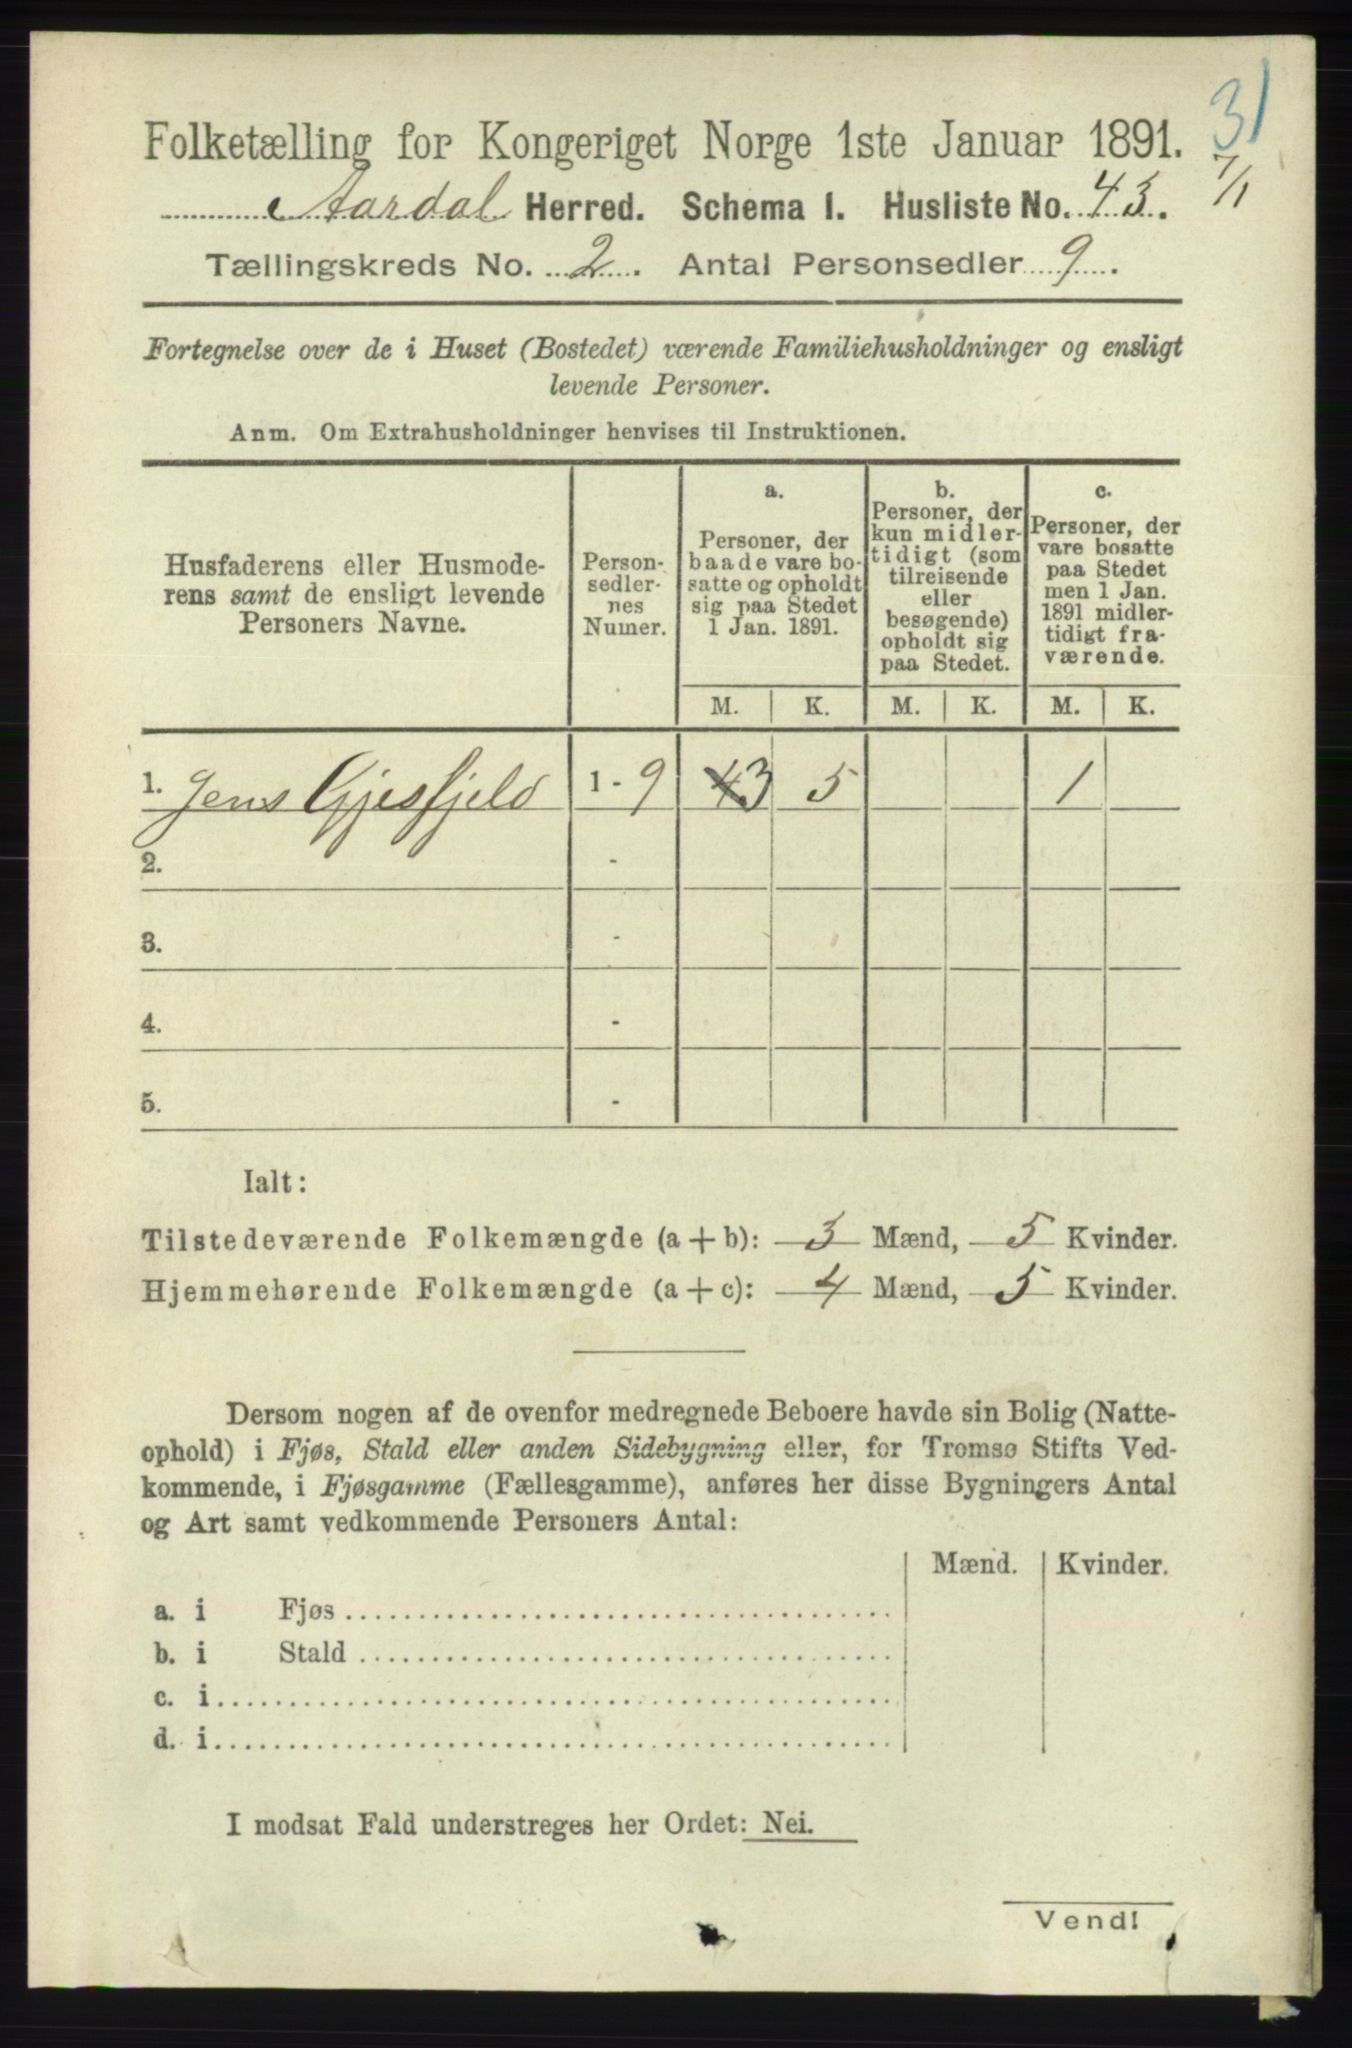 31
Folketælling for Kongeriget Norge 1ste Januar 1891.
7/1
Aardal Herred. Schema I. Husliste No. 43.
Tællingskreds No. 2. Antal Personsedler 9.
Fortegnelse over de i Huset (Bostedet) værende Familiehusholdninger og ensligt
levende Personer.
Anm. Om Extrahusholdninger henvises til Instruktionen.
Husfaderens eller Husmode-
rens samt de ensligt levende
Personers Navne.
Person-
sedler-
nes
Numer.
a.
Personer, der
baade vare bo-
satte og opholdt
sig paa Stedet
1 Jan. 1891.
b.
Personer, der
kun midler-
tidigt (som
tilreisende
eller
besøgende)
opholdt sig
paa Stedet.
c.
Personer, der
vare bosatte
paa Stedet
men 1 Jan.
1891 midler-
tidigt fra-
værende.
M. K. M. K. M. K.
1. Jens Gjesfjeld 1 - 9 4 3 5 1
2. -
3. -
4. -
5. -
Ialt:
Tilstedeværende Folkemængde (a + b): 3 Mænd, 5 Kvinder.
Hjemmehørende Folkemængde (a + c): 4 Mænd, 5 Kvinder.
Dersom nogen af de ovenfor medregnede Beboere havde sin Bolig (Natte-
ophold) i Fjøs, Stald eller anden Sidebygning eller, for Tromsø Stifts Ved-
kommende, i Fjøsgamme (Fællesgamme), anføres her disse Bygningers Antal
og Art samt vedkommende Personers Antal:
Mænd. Kvinder.
a. i Fjøs
b. i Stald
c. i
d. i
I modsat Fald understreges her Ordet: Nei.
Vend!